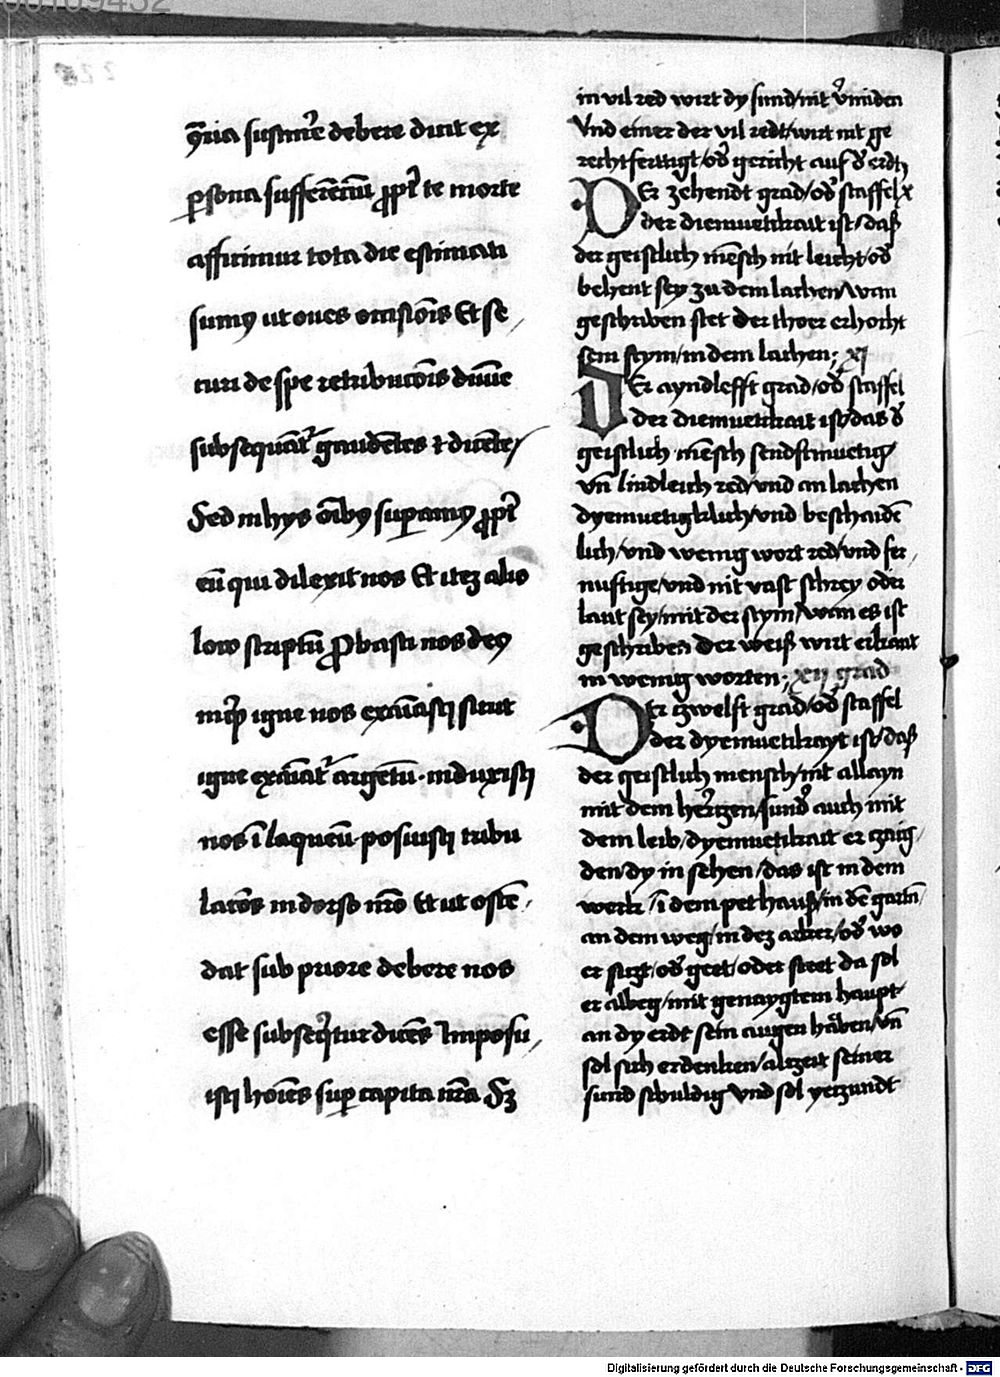 9ria sustinere debere dicit ex
ꝑsona suffere̅ciu̅ ꝓpt̉ te morte
afficimur tota die estimati
sumꝯ ut oues occisio̅is Et se
curi de spe retribuc̅ois diuine
subsequu̅t̉ gaude̅tes & dice̅tes
Sed in hys o̅ibꝯ suꝑamꝯ ꝓpt̉
eu̅ qui dilexit nos Et ite̅ alio
loco scriptu̅ Probasti nos deꝯ
igne nos exa̅iasti sicut
igne exa̅iat̉ argentu̅· induxisti
nos i̅ laqueu̅ posuisti tribu
lac̅oes in dorso nr̅o Et ut oste̅
dat sub priore debere nos
esse subseq̉tur dice̅s Imposu
isti ho̅ies suꝑ capita nr̅a Sꝫ
in vil red wirt dy sund/nit v̉miden
Vnd einer der vil redt/wirt nit ge
rechtfertigt/od̉ gericht auf d̉ erdt
DEr zehendt grad/od̉ staffel x
der diemuetikait ist/daß
der geistlich me̅sch nit leicht/od̉
behent sey zu dem lachen/wan
geschriben stet der thoer erhocht
sein stym/in dem lachen; xj
DEr ayndlefft grad/od̉ staffel
der diemuetikait ist/das d̉
geistlich me̅sch senftmuetig
vn̅ lindleich red/vnd an lachen
dyemuetigklich/vnd beschaide̅
lich/vnd wenig wort red/vnd fer
nuftige/vnd nit vast schrey oder
laut sey/mit der stym/wan es ist
geschriben der weiß wirt erkant
in wenig worten; xij grad
DEr zwelft grad/od̉ staffel
der dyemuetikayt ist/daß
der geistlich mensch/nit allayn
mit dem hertzen/sund̉ auch mit
dem leib/dyemuetikait er tzaig
den/dy in sehen/das ist in dem
werk/i̅ dem pethauß/in de̅ gartn̅
an dem weg/in dez acker/od̉ wo
er sitzt/od̉ geet/oder steet da sol
er albeg/mit genaygtem haupt
an dy erdt sein augen haben/vn̅
sol sich erdenken/altzeit seiner
sund schuldig vnd sol yetzundt
Digitalisierung gefördert durch die Deutsche Forschungsgemeinschaft - DFG